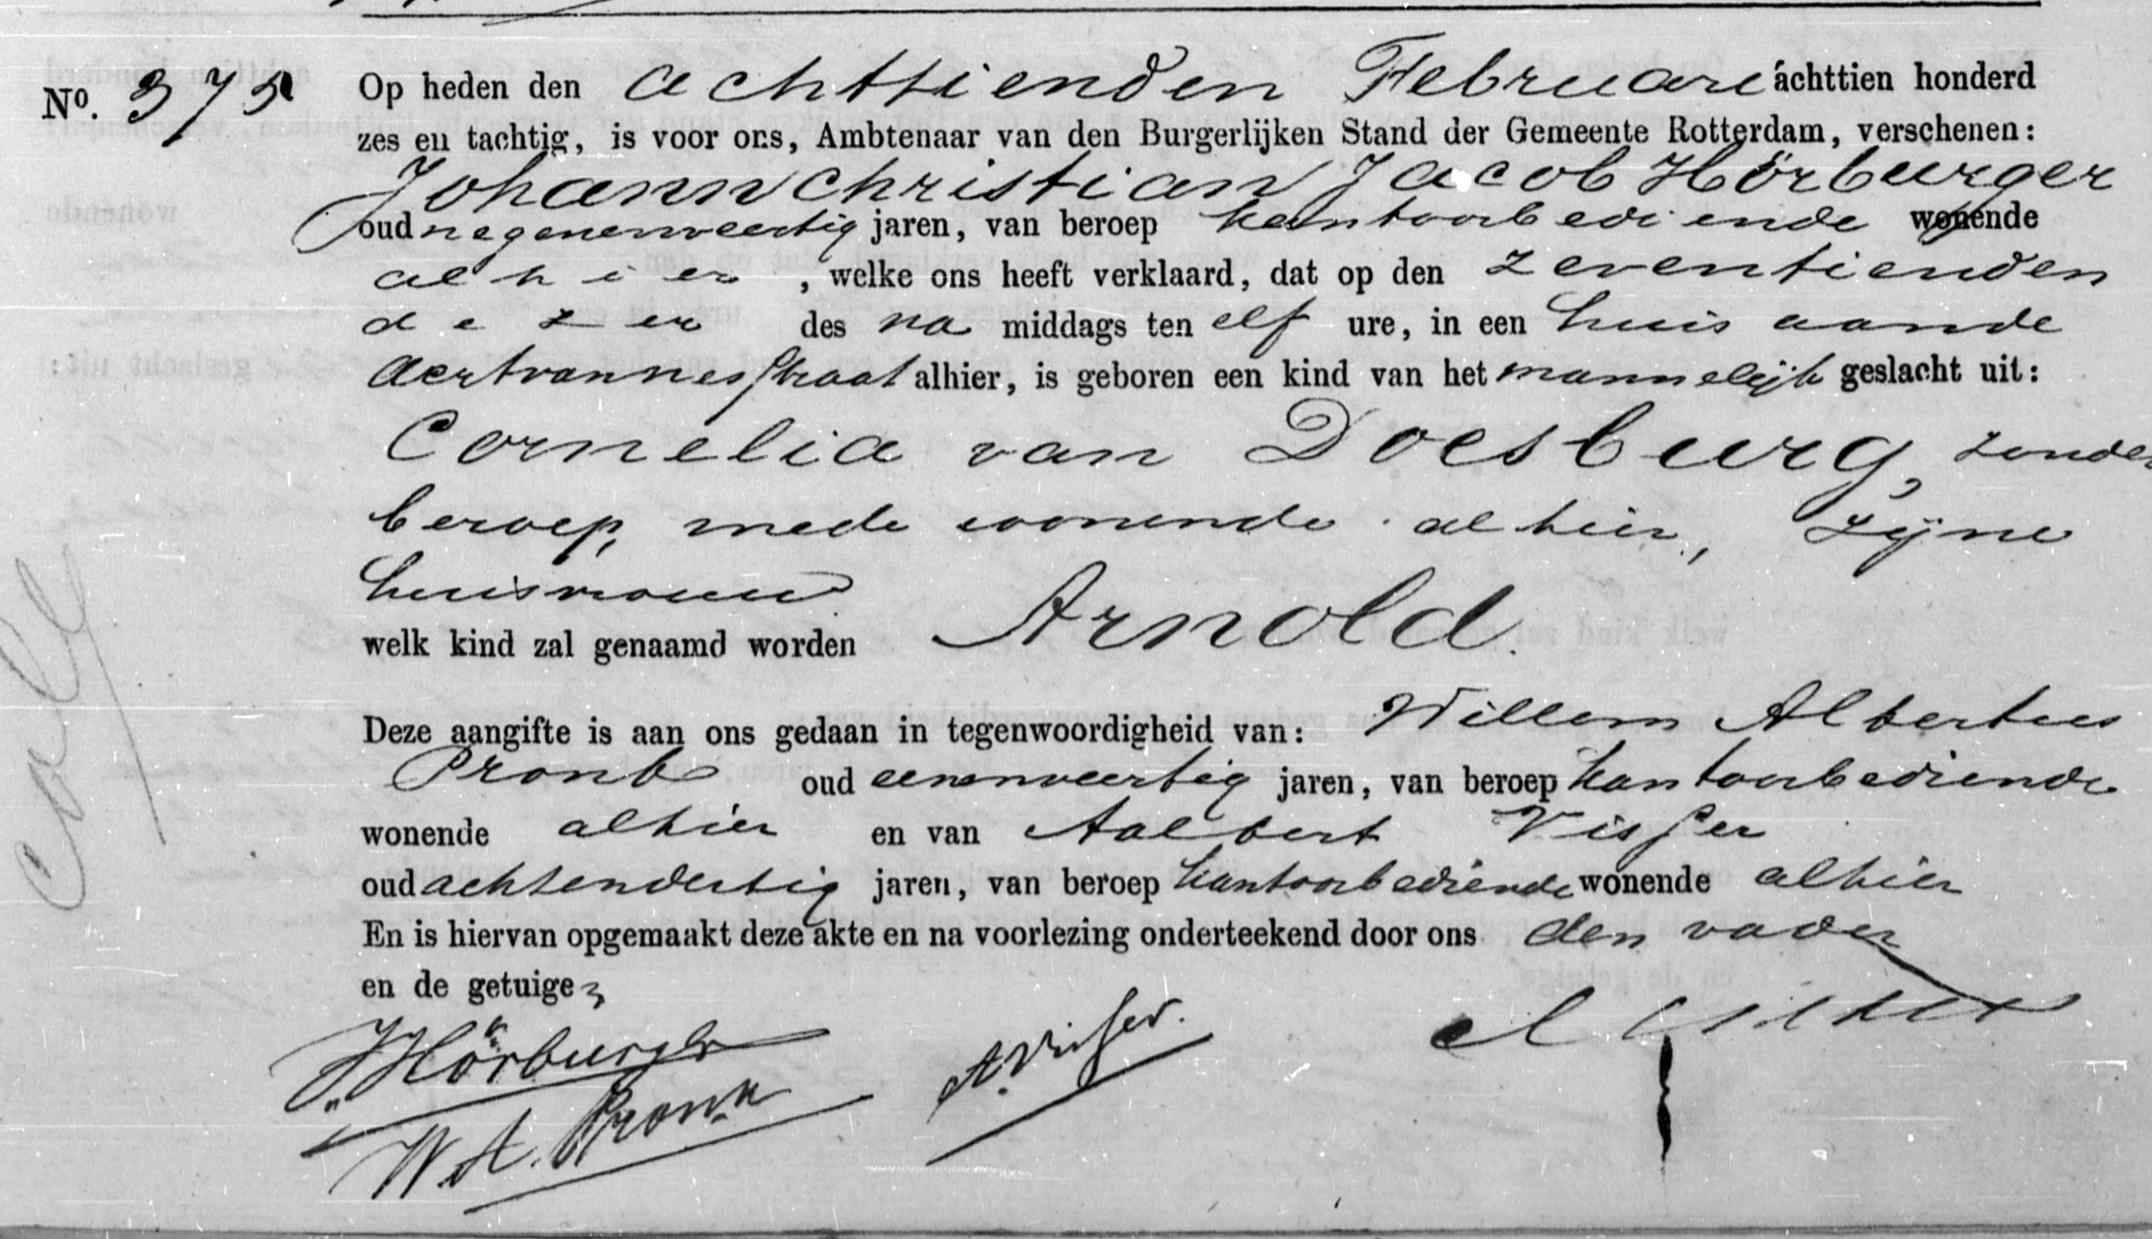 No. 375 Op heden den achttienden Februari achttien honderd
zes en tachtig, is voor ons, Ambtenaar van den Burgerlijken Stand der Gemeente Rotterdam, verschenen:
Johann Christian Jacob Hörburger
oud negenenveertig jaren, van beroep kantoorbediende wonende
alhier, welke ons heeft verklaard, dat op den zeventienden
dezer des na middags ten elf ure, in een huis aan de
Aertvannesstraat alhier, is geboren een kind van het mannelijk geslacht uit:
Cornelia van Doesburg, zonder
beroep, mede wonende alhier, zijne
huisvrouw
welk kind zal genaamd worden Arnold.
Deze aangifte is aan ons gedaan in tegenwoordigheid van: Willem Albertus
Pronk oud eenenveertig jaren, van beroep kantoorbediende
wonende alhier en van Aalbert Visser
oud achtendertig jaren, van beroep kantoorbediende wonende alhier
En is hiervan opgemaakt deze akte en na voorlezing onderteekend door ons den vader
en de getuigen
JHörburger
W. A. Pronk
A. Visser.